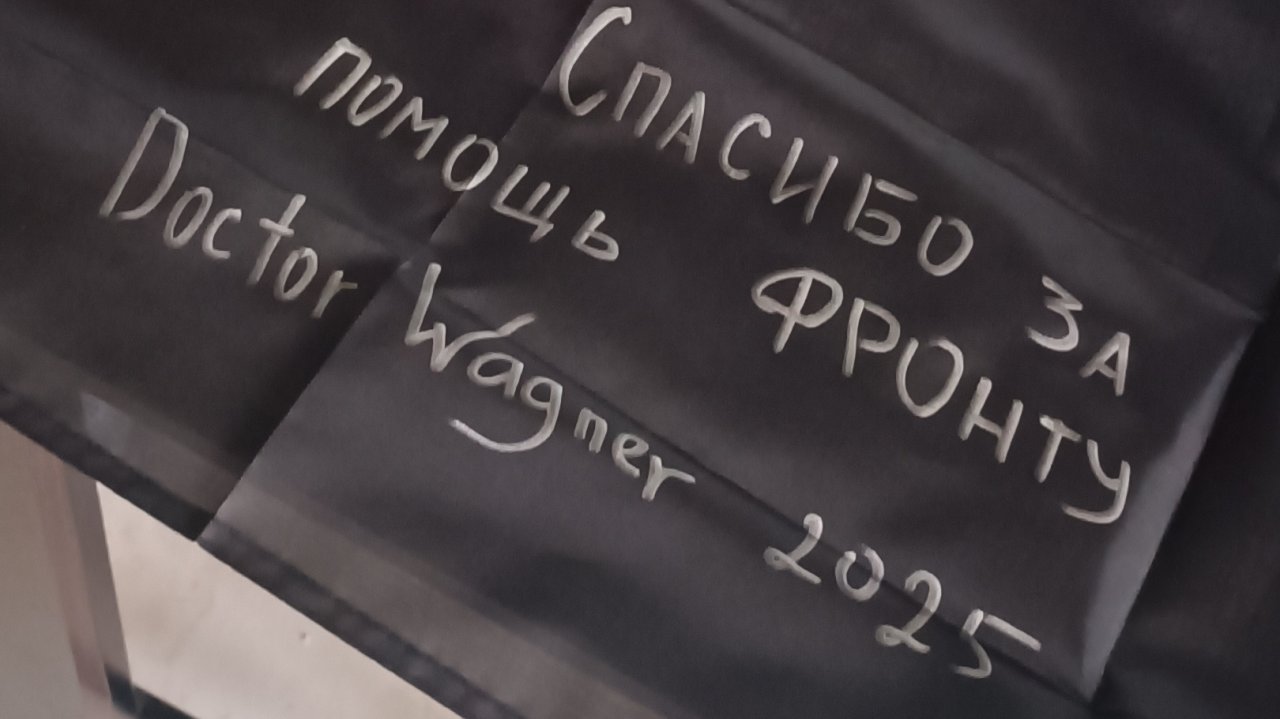 Спасибо за
помощь фронту
Doctor Wagner 2025